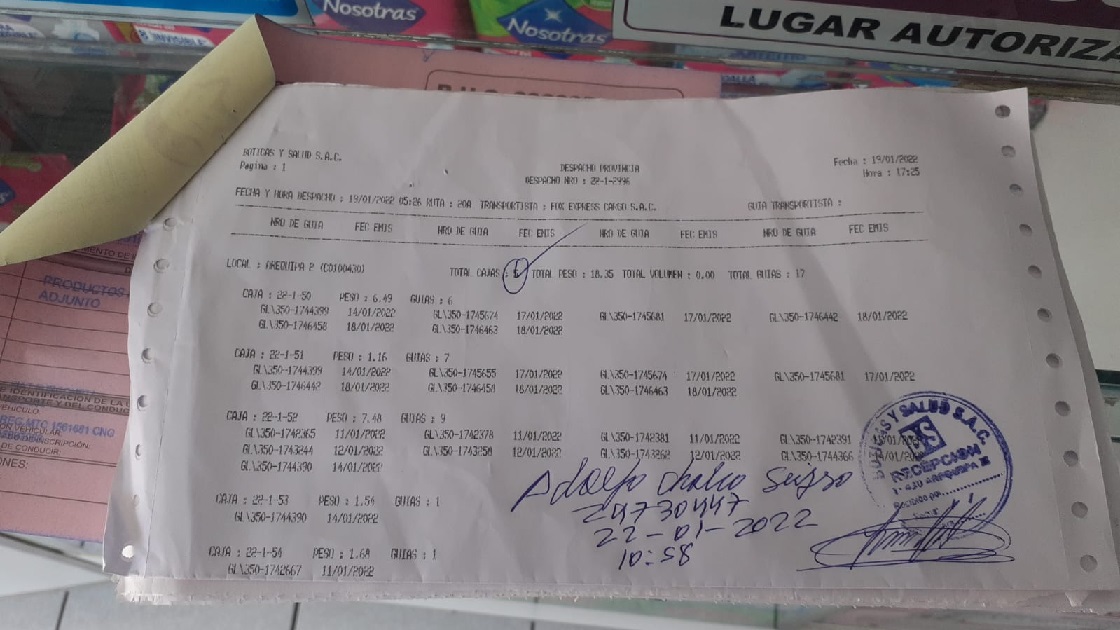 Nosotras
Nosotras
LUGAR AUTORIZA
BOTICAS Y SALUD S.A.C.
Pagina : 1
DESPACHO PROVINCIA
DESPACHO NRO : 22-1-2996
Fecha : 19/01/2022
Hora : 17:25
FECHA Y HORA DESPACHO : 19/01/2022 05:26 RUTA : 20A TRANSPORTISTA : FOX EXPRESS CARGO S.A.C. GUIA TRANSPORTISTA :
NRO DE GUIA FEC EMIS NRO DE GUIA FEC EMIS NRO DE GUIA FEC EMIS NRO DE GUIA FEC EMIS
LOCAL : AREQUIPA 2 (C0100430) TOTAL CAJAS : 5 TOTAL PESO : 18.35 TOTAL VOLUMEN : 0.00 TOTAL GUIAS : 17
CAJA : 22-1-50 PESO : 6.49 GUIAS : 6
GL\350-1744399 14/01/2022 GL\350-1745674 17/01/2022 GL\350-1745681 17/01/2022 GL\350-1746442 18/01/2022
GL\350-1746458 18/01/2022 GL\350-1746463 18/01/2022
CAJA : 22-1-51 PESO : 1.16 GUIAS : 7
GL\350-1744399 14/01/2022 GL\350-1745655 17/01/2022 GL\350-1745674 17/01/2022 GL\350-1745681 17/01/2022
GL\350-1746442 18/01/2022 GL\350-1746458 18/01/2022 GL\350-1746463 18/01/2022
CAJA : 22-1-52 PESO : 7.48 GUIAS : 9
GL\350-1742365 11/01/2022 GL\350-1742378 11/01/2022 GL\350-1742381 11/01/2022 GL\350-1742391
GL\350-1743244 12/01/2022 GL\350-1743258 12/01/2022 GL\350-1743268 12/01/2022 GL\350-1744366
GL\350-1744390 14/01/2022
CAJA : 22-1-53 PESO : 1.54 GUIAS : 1
GL\350-1744390 14/01/2022
CAJA : 22-1-54 PESO : 1.68 GUIAS : 1
GL\350-1742667 11/01/2022
BOTICAS Y SALUD S.A.C.
BS
RECEPCION
AREQUIPA
Adolfo
24730447
22-01-2022
10:58
PRODUCTOS
ADJUNTO